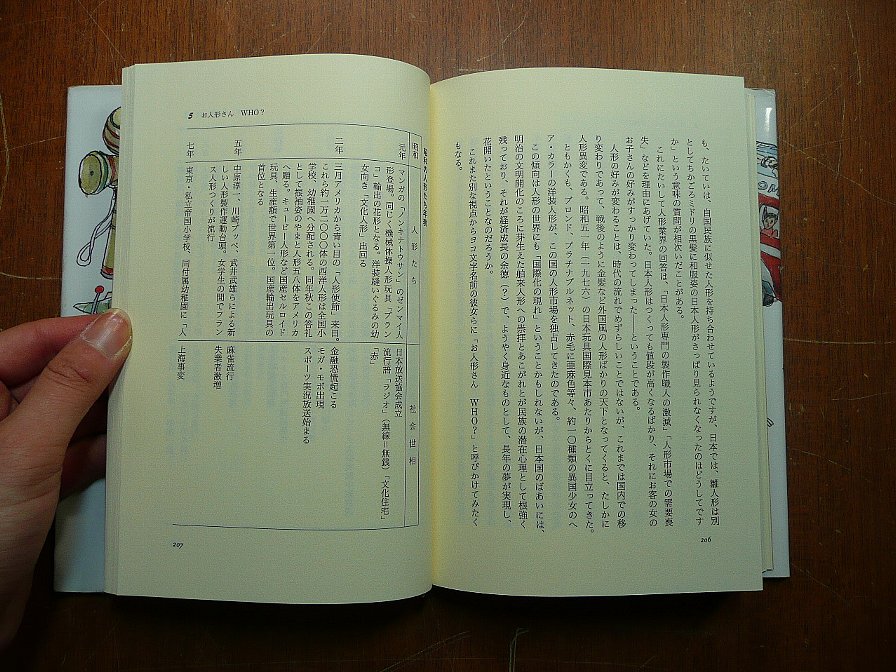 も、たいていは、自国民族に似せた人形を持ち合わせているようですが、日本では、雛人形は別
としてちかごろミドリの黒髪に和服姿の日本人形がさっぱり見られなくなったのはどうしてです
か」という意味の質問が相次いだことがある。
これにたいして人形業界の回答は、「日本人形専門の製作職人の激減」「人形市場での需要喪
失」などを理由にあげていた。日本人形はつくっても値段が高くなるばかり、それにお客の女の
お子さんの好みがすっかり変わってしまった——ということである。
人形の好みが変わるとは、時代の流れでめずらしいことではないが、これまでは国内での移
り変わりであって、戦後のように金髪など外国風の人形ばかりの天下となってくると、たしかに
人形異変である。昭和五一年（一九七六）の日本玩具国際見本市あたりからとくに目立ってきた。
ともかくも、ブロンド、プラチナブルネット、赤毛に亜麻色等々、約一〇種類の異国少女のヘ
ア・カラーの洋装人形が、この国の人形市場を独占してきたのである。
この傾向は人形の世界にも「国際化の現れ」ということかもしれないが、日本国のばあいには、
明治の文明開化のころに芽生えた舶来人形への崇拝とあこがれとが民族の潜在心理として根強く
残っており、それが経済成長の余徳（？）で、ようやく身近なものとして、長年の夢が実現し、
花開いたということなのだろうか。
これまた別な視点からヨコ文字名前の彼女らに「お人形さん WHO?」と呼びかけてみたく
もなる。
206
5 お人形さん WHO?
昭和 人形たち 社会世相
元年 マンガの「ノンキナトウサン」のゼンマイ人 日本放送協会成立
形登場。同じく機械体操人形玩具「ブラン 流行語「ラジオ」（無線＝無銭）「文化住宅」
コ」輸出の花形となる。洋装縫いぐるみの幼 「赤」
女向き「文化人形」出回る
二年 三月アメリカから青い目の「人形使節」来日。 金融恐慌起こる
これら約一万二〇〇〇体の西洋人形は全国小 モガ・モボ出現
学校、幼稚園へ分配される。同年人形の答礼 スポーツ実況放送始まる
として振袖姿のやまと人形五八体をアメリカ
へ贈る。キューピー人形など国産セルロイド
玩具、生産額で世界第一位。国産輸出玩具の
首位となる
五年 中原淳一、川崎プッペ、武井武雄らによる新 麻雀流行
しい人形製作運動台頭。女学生の間でフラン 失業者激増
ス人形つくりが流行
七年 東京・私立帝国小学校、同付属幼稚園に「人 上海事変
207